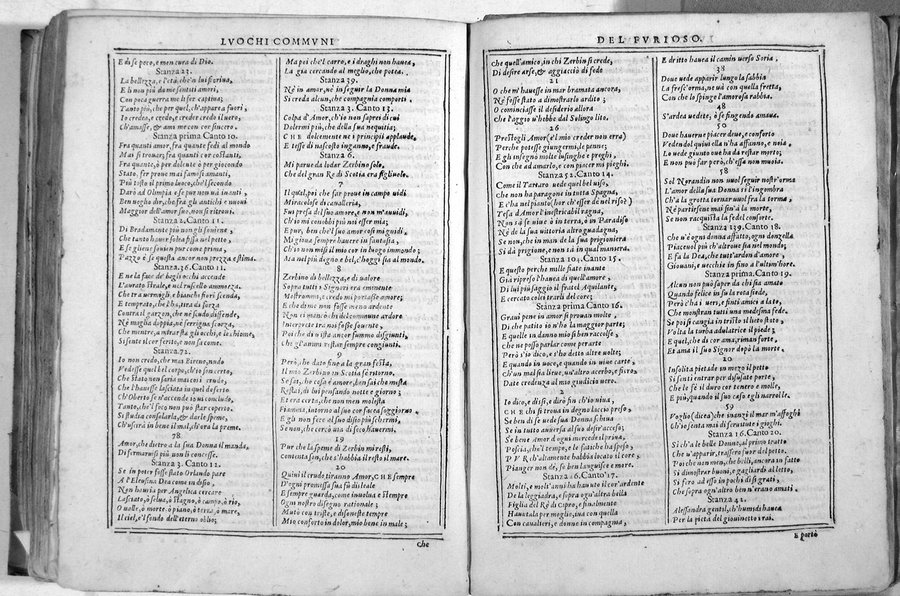 LVOCHI COMMVNI
E di se poco, e men cura di Dio.
Stanza 23.
La bellezza, e l'età, ch'in lui fioriua,
E li non più da me sentiti amori,
Con poca guerra me li fer captiua;
Tanto più, che per quel, ch'apparea fuori,
Io credea, e credo, e creder credo il uero,
Ch'amasse, & ami me con cor sincero.
Stanza prima Canto 10.
Fra quanti amor, fra quante fedi al mondo
Mai si trouar, fra quanti cor costanti,
Fra quante, ò per dolente ò per giocondo
Stato, fer proue mai famosi amanti,
Più tosto il primo loco, ch'il secondo
Darò ad Olimpia e se pur non uà inanti,
Ben uoglio dir, che fra gli antichi e nuoui
Maggior dell'amor suo, non si ritroui.
Stanza 2. Canto 11.
Di Bradamante più non gli souiene,
Che tanto hauer solea fissa nel petto,
E se gli ne souien pur come prima,
Pazzo è se questa ancor non prezza e stima.
Stanza. 36. Canto 11.
E ne la face de' begli occhi accende
L'aurato strale, e nel ruscello ammorza,
Che tra uermigli, e bianchi fiori scende,
E temprato, che l'ha, tira di forza
Contra il garzon, che nè scudo difende,
Nè maglia doppia, nè ferrigna scorza,
Che mentre, à mirar sta gli occhi, e le chiome,
Si sente il cor ferito, e non sa come.
Stanza. 72.
Io non credo, che mai Bireno, nudo
Vedesse quel bel corpo, ch'io son certo,
Che stato non saria mai cosi crudo,
Che l'hauesse lasciata in quel deserto.
Ch'Oberto se n'accende io ui concludo,
Tanto, che'l foco non può star coperto.
Si studia consolarla, & darle speme,
Ch'uscirà in bene il mal, ch'ora la preme.
78
Amor, che dietro a la sua Donna il manda,
Di fermarusi più non li concesse.
Stanza 3. Canto 12.
Se in poter fosse stato Orlando pare
A l'Eleusina Dea come in disio,
Non hauria per Angelica cercare
Lasciato, ò selua, ò stagno, ò campo, ò rio,
O ualle, ò monte. ò piano, ò terra, ò mare,
Il ciel, e'l fondo dell'eterno oblio;
Ma poi che'l carro, e i draghi non hauea,
La gia cercando al meglio, che potea.
Stanza 39.
Nè in amor, nè in seguir la Donna mia
Si creda alcun, che compagnia comporti
Stanza 3. Canto 13.
Colpa d'Amor, ch'io non saprei di cui
Dolermi più, che della sua nequitia;
CHE dolcemente ne i principij applaude,
E tesse di nascosto inganno, e fraude.
Stanza 6.
Mi parue da lodar Zerbino solo,
Che del gran Re di Scotia era figliuolo.
7
Il qual, poi che far proue in campo uidi
Miracolose di caualleria,
Fui presa del suo amor, e non m'auuidi,
Ch'io mi conobbi più non esser mia;
E pur, ben che'l suo amor cosi mi guidi,
Mi gioua sempre hauere in fantasia,
Ch'io non misi il mio cor in luogo immondo;
Ma nel più degno e bel, c'hoggi sia al mondo.
8
Zerbino di bellezza, e di ualore
Sopra tutti i Signori era eminente
Mostrommi, e credo mi portasse amore;
E che di me non fosse meno ardente
Non ci mancò chi del commune ardore
Interprete tra noi fosse souente,
Poi che di uista ancor fummo disgiunti,
Che gl'animi restar sempre congiunti.
9
Però, che dato fine a la gran festa,
Il mio Zerbino in Scotia fè ritorno.
Se sai, che cosa è amore, ben sai che mesta
Restai, di lui pensando notte e giorno;
Et era certa, che non men molesta
Fiamma, intorno al suo cor facea soggiorno
E gli non fece al suo disio più schermi,
Se non, che cercò uia di seco hauermi.
19
Pur che la speme di Zerbin mi resti,
Contenta son, che s'habbia il resto il mare.
20
Quini il crudo tiranno Amor, CHE sempre
D'ogni promessa sua fù disleale
E sempre guarda, come inuolua e stempre
Ogni nostro disegno rationale;
Mutò con triste, e disoneste tempre
Mio conforto in dolor, mio bene in male;
Che
DEL FVRIOSO.
Che quell'amico, in chi Zerbin si crede,
Di desire arse, & agghiacciò di fede
21
O che m'hauesse in mar bramata ancora,
Nè fosse stato a dimostrarlo ardito;
O cominciasse il desiderio allora
Che l'aggio u'hebbe dal Solingo lito.
26
Prestogli Amor (s'il mio creder non erra)
Perche potesse giungermi, le penne;
E gli insegnò molte lusinghe e preghi,
Con che ad amarlo, e compiacer mi pieghi.
Stanza 52. Canto 14.
Come il Tartaro uede quel bel uiso,
Che non ha paragone in tutta Spagna,
E c'ha nel pianto (hor ch'esser de' nel riso?)
Tesa di Amor l'inestricabil ragna,
Non sà se uiue ò in terra, ò in Paradiso
Nè de la sua uittoria altro guadagna,
Se non, che in man de la sua prigioniera
Si dà prigione, e non sà in qual maniera.
Stanza 104. Canto 15.
E questo perche mille fiate inante
Gia ripreso l'hauea di quell'amore,
Di lui più saggio il fratel Aquilante,
E cercato colei trarli del core;
Stanza prima Canto 16.
Graui pene in amor si prouan molte,
Di che patito io n'ho la maggior parte;
E quelle in danno mio si ben raccolte,
Che ne posso parlar come per arte
Però s'io dico, e s'ho detto altre uolte;
E quando in uoce, e quando in uiue carte,
Ch'un mal sia lieue, un'altro acerbo, e fiero,
Date credenza al mio giudicio uero.
2
Io dico, e dissi, e dirò fin ch'io uiua,
CHE chi si troua in degno laccio preso,
Se ben di se uede sua Donna schiua
Se in tutto auuersa al suo desir'acceso;
Se bene Amor d'ogni mercede il priua,
Poscia, che'l tempo, e le fatiche ha speso,
PVR ch'altamente habbia locato il core,
Pianger non dè, se ben languisce e more.
Stanza 26. Canto 17.
Molti, e molt'anni ha hauuto il cor'ardente
De la leggiadra, e sopra ogni altra bella
Figlia del Rè di Cipro, e finalmente
Hauutala per moglie, iua con quella
Con caualieri, e donne in compagnia,
E dritto hauea il camin uerso Soria.
38
Doue uede apparir lungo la sabbia
La fres'orma, ne uà con quella fretta,
Con che lo spinge l'amorosa rabbia.
48
S'ardea uedete, ò se fingendo amaua.
50
Doue hauerne piacer deue, e conforto
Veden dol quiui ella n'ha affanno, e noia,
Lo uede giunto oue ha da restar morto;
E non può far però, ch'essa non muoia.
58
Sol Norandin non uuol seguir nostr'orma
L'amor della sua Donna si l'ingombra
Ch'a la grotta tornar uuol fra la torma,
Nè partirsene mai sin'à la morte,
Se non racquista la fedel consorte.
Stanza 139. Canto 18.
Che u'è ogni donna affatto, ogni donzella
Piaceuol più ch'altroue sia nel mondo;
E fa la Dea, che tutt'ardon d'amore
Giouani, e uecchie in fino a l'ultim'hore.
Stanza prima. Canto 19.
Alcun non può saper da chi sia amato
Quando felice in su la rota siede,
Però c'ha i ueri, e finti amici a lato,
Che monstran tutti una medesma fede.
Se poi si cangia in tristo il lieto stato,
Volta la turba adulatrice il piede;
E quel, che di cor ama, riman forte,
Et ama il suo Signor dopò la morte.
20
Insolita pietade in mezo il petto
Si senti entrar per disusate porte,
Che le fe il duro cor tenero e molle,
E più, quando il suo caso egli narrolle.
59
Voglio (dicea) che inanzi il mar m'affoghi
Ch'io senta mai di seruitute i gioghi.
Stanza 16. Canto 20.
Sì ch'a le belle Donne, al primo tratto
Che u'apparir, trasser fuor del petto.
Poi che non men, che belli, ancora in fatto
Si dimostrar buoni, e gagliardi al letto,
Si fero ad esso in pochi dì si grati,
Che sopra ogn'altro ben n'erano amati.
Stanza 41.
Alessandra gentil, ch'humidi hauea
Per la pieta del giouinetto i rai.
E portò